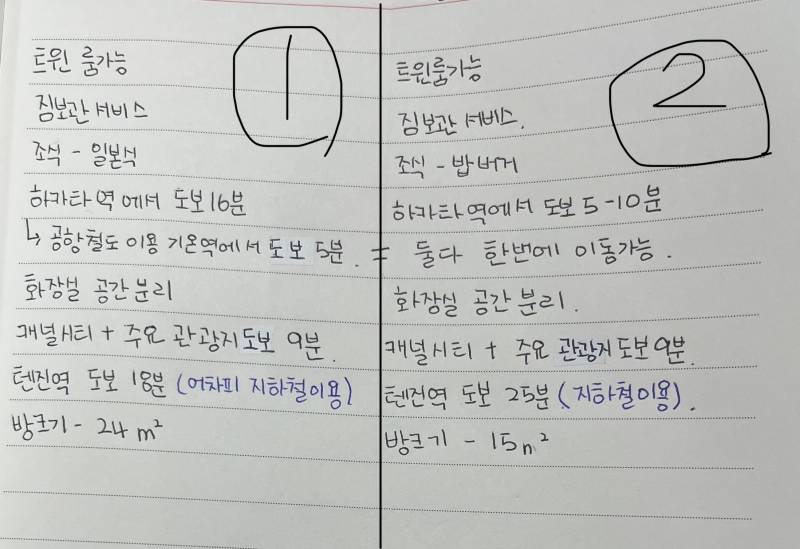 1
트윈 룸가능
짐보관 서비스
조식 - 일본식
하카타역에서 도보 16분
↳ 공항철도 이용 기온역에서 도보 5분.
화장실 공간분리
캐널시티 + 주요 관광지 도보 9분.
텐진역 도보 18분 (어차피 지하철이용)
방크기 - 24 m²
2
트윈룸가능
짐보관 서비스.
조식 - 밥버거
하카타역에서 도보 5-10분
= 둘다 한번에 이동가능.
화장실 공간분리.
캐널시티 + 주요 관광지 도보 9분.
텐진역 도보 25분 (지하철이용).
방크기 - 15n²